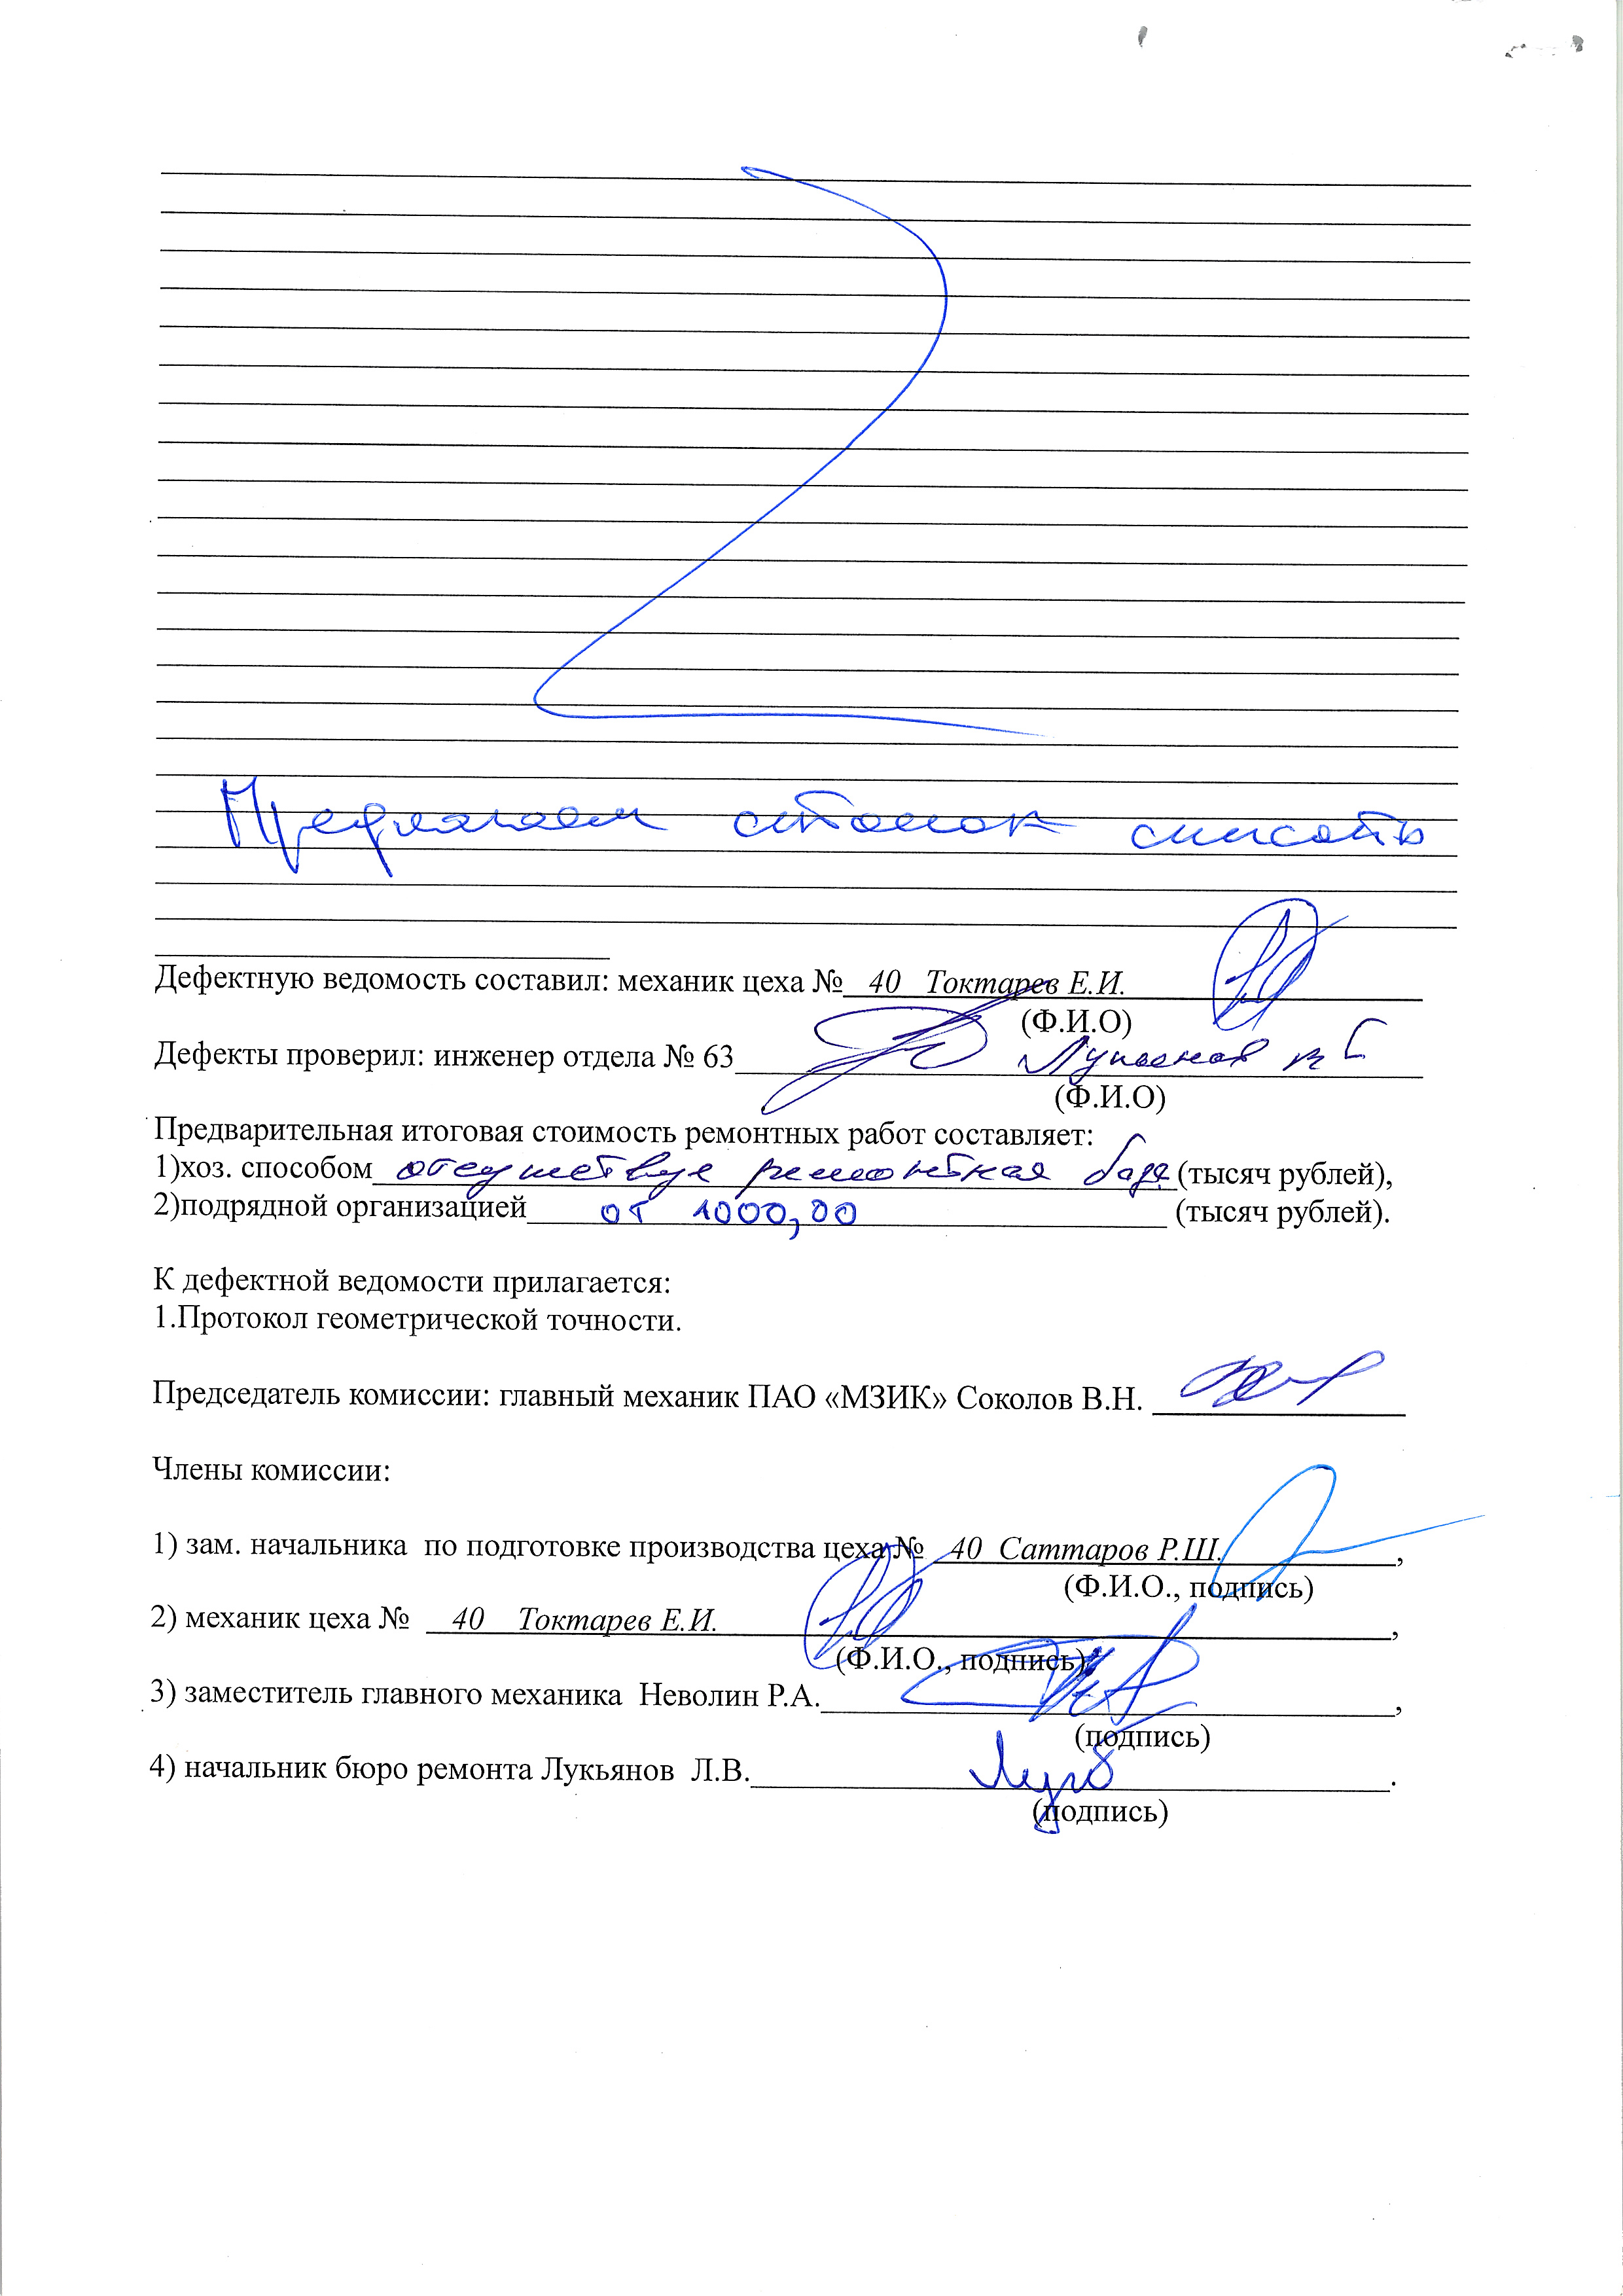 Предлагаем станок списать
Дефектную ведомость составил: механик цеха № 40 Токтарев Е.И.
(Ф.И.О)
Дефекты проверил: инженер отдела № 63
(Ф.И.О)
Предварительная итоговая стоимость ремонтных работ составляет:
1)хоз. способом отсутствуе ремонтная база (тысяч рублей),
2)подрядной организацией от 1000,00 (тысяч рублей).
К дефектной ведомости прилагается:
1.Протокол геометрической точности.
Председатель комиссии: главный механик ПАО «МЗИК» Соколов В.Н.
Члены комиссии:
1) зам. начальника по подготовке производства цеха № 40 Саттаров Р.Ш.,
(Ф.И.О., подпись)
2) механик цеха № 40 Токтарев Е.И.,
(Ф.И.О., подпись)
3) заместитель главного механика Неволин Р.А.,
(подпись)
4) начальник бюро ремонта Лукьянов Л.В.
(подпись)